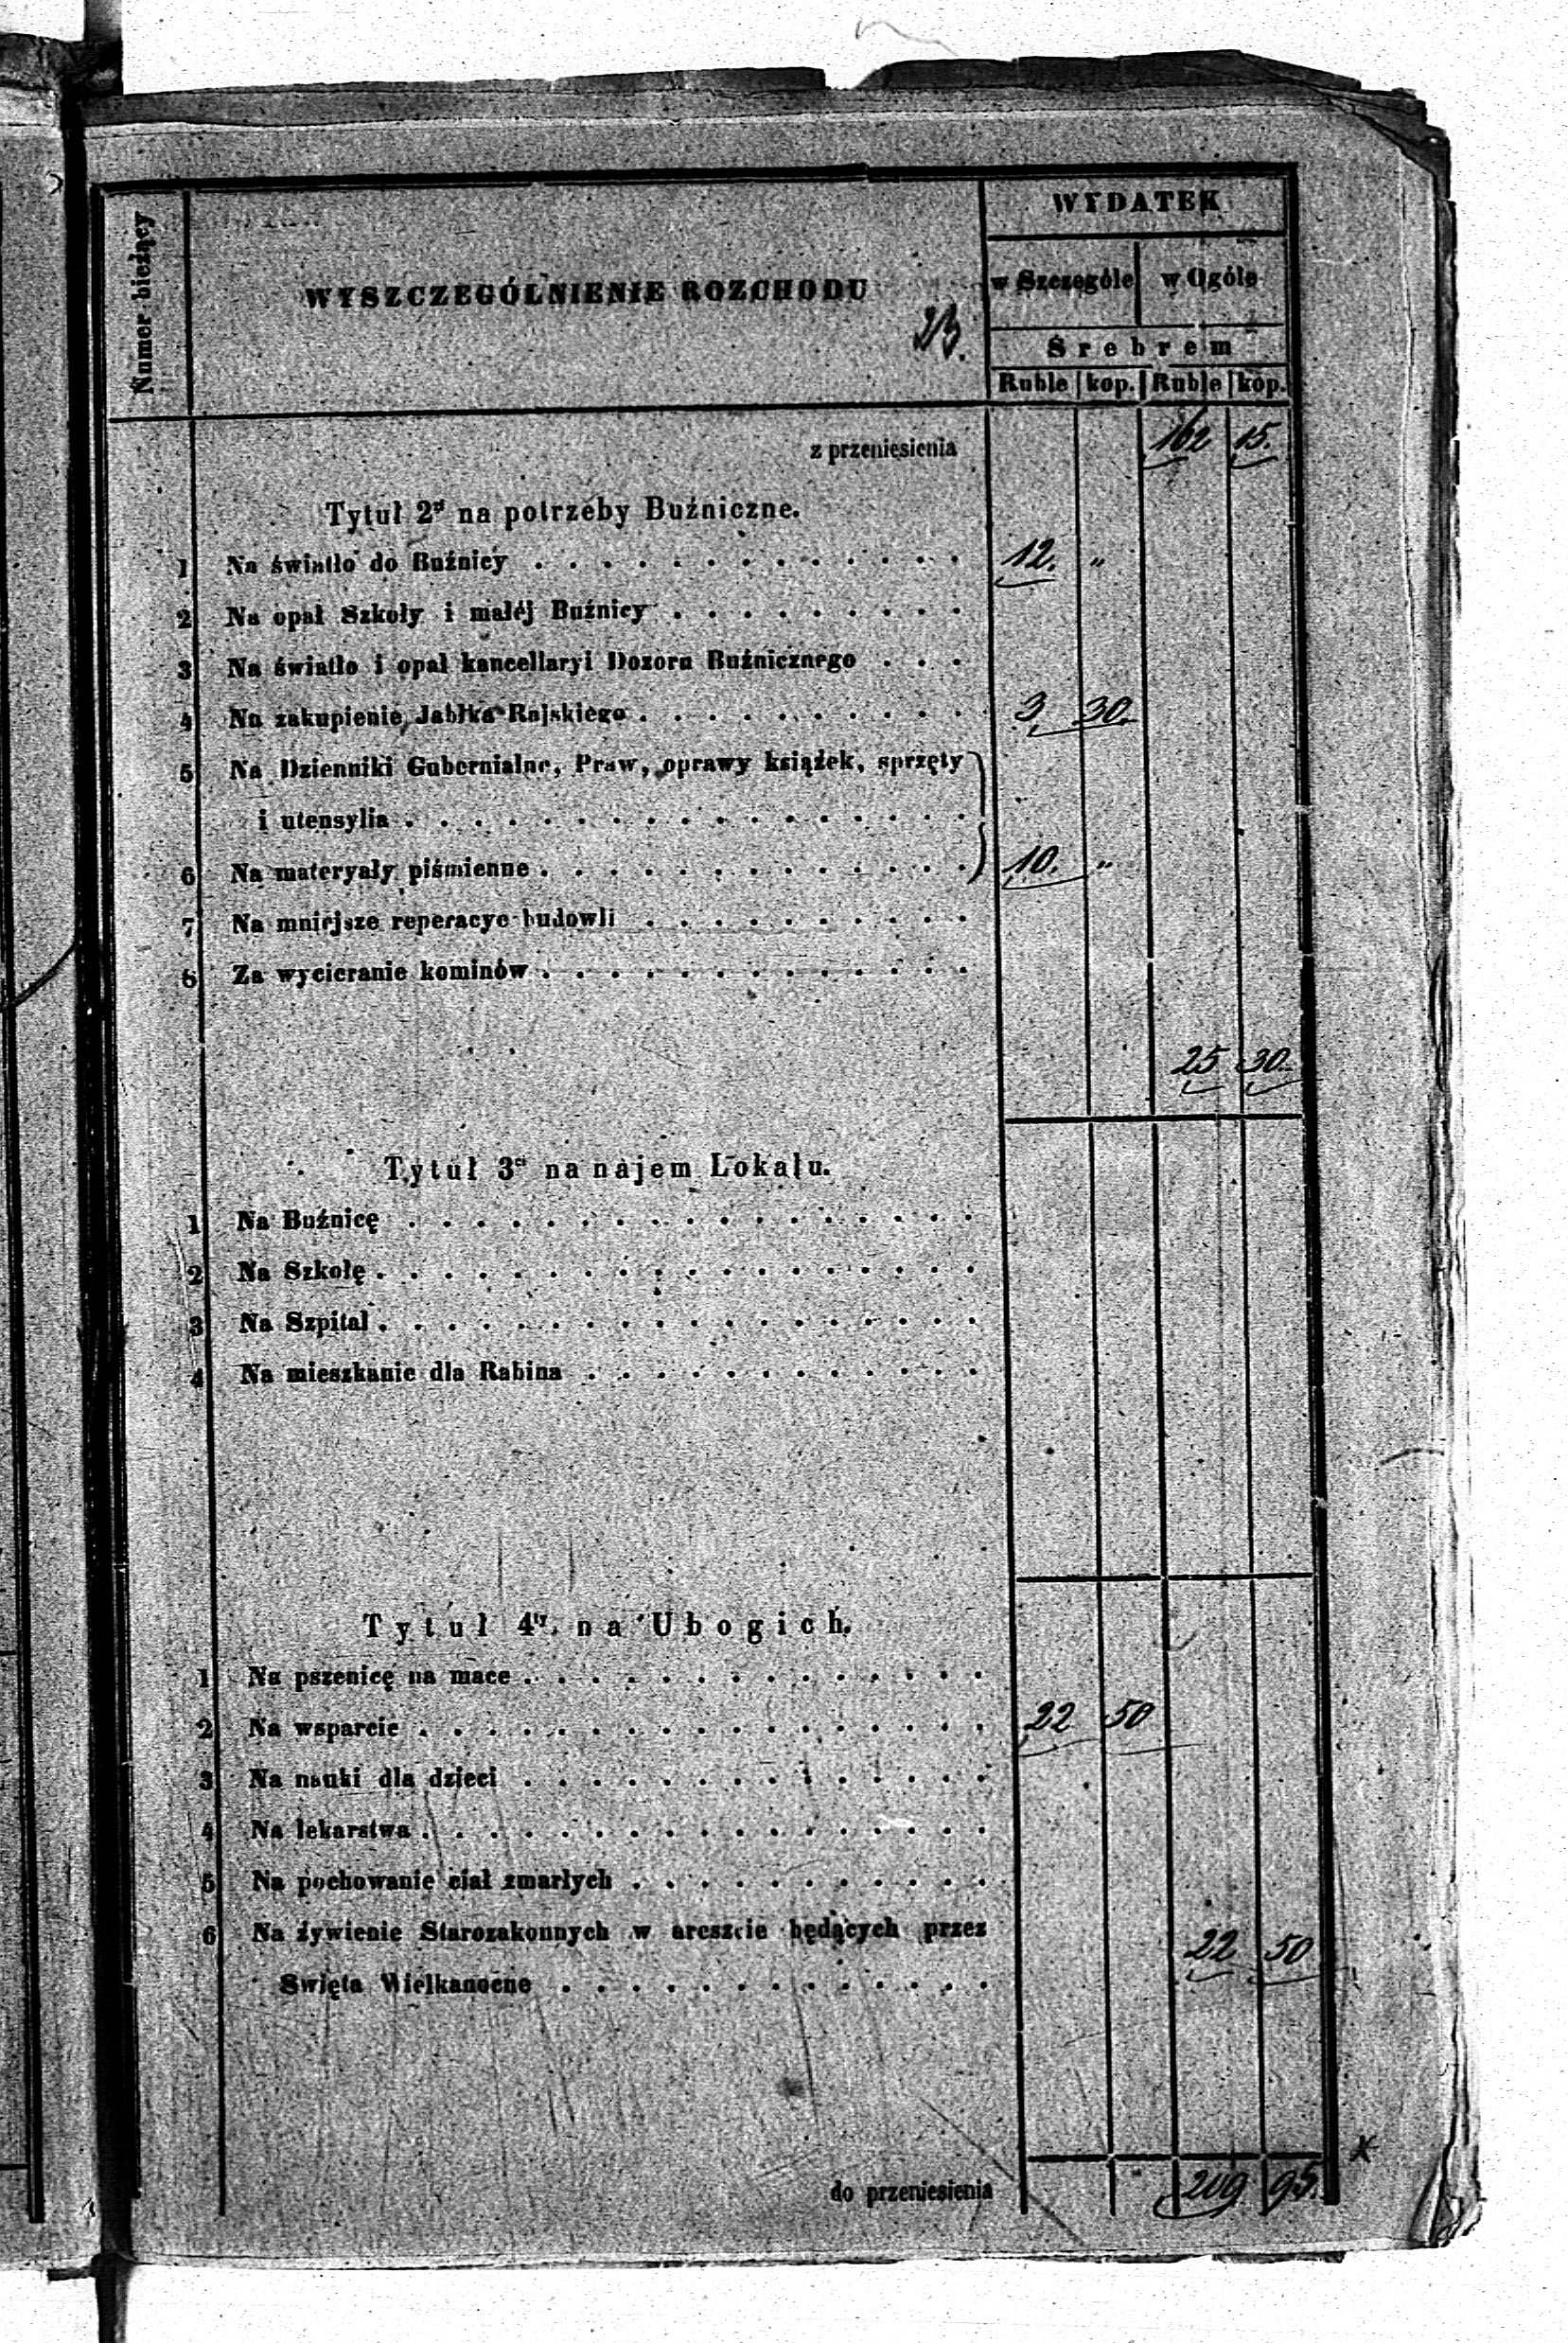 Numer bieżący
WYSZCZEGÓLNIENIE ROZCHODU
23.
WYDATEK
w Szczególe w Ogóle
Srebrem
Ruble kop. Ruble kop.
z przeniesienia 162 15.
Tytuł 2gi na potrzeby Buźniczne.
1 Na światło do Buźnicy . . . . . . . . . . . . . 12. "
2 Na opał Szkoły i małéj Buźnicy . . . . . . . . .
3 Na światło i opał kancellaryi Dozoru Buźnicznego . . .
4 Na zakupienie Jabłka Rajskiego . . . . . . . . . . 3 30.
5 Na Dzienniki Gubernialne, Praw, oprawy książek, sprzęty
i utensylia . . . . . . . . . . . . . . . . .
6 Na materyały piśmienne . . . . . . . . . . . . . 10. "
7 Na mniejsze reperacye budowli . . . . . . . . . .
8 Za wycieranie kominów . . . . . . . . . . . . .
25 30.
Tytuł 3ci na najem Lokalu.
1 Na Buźnicę . . . . . . . . . . . . . . . . .
2 Na Szkołę . . . . . . . . . . . . . . . . . .
3 Na Szpital . . . . . . . . . . . . . . . . . .
4 Na mieszkanie dla Rabina . . . . . . . . . . . .
Tytuł 4ty na Ubogich.
1 Na pszenicę na mace . . . . . . . . . . . . . .
2 Na wsparcie . . . . . . . . . . . . . . . . . 22 50
3 Na nauki dla dzieci . . . . . . . . . . . . . .
4 Na lekarstwa . . . . . . . . . . . . . . . . .
5 Na pochowanie ciał zmarłych . . . . . . . . . . .
6 Na żywienie Starozakonnych w areszcie będących przez
Święta Wielkanocne . . . . . . . . . . . . . 22 50
do przeniesienia 209 95.
x